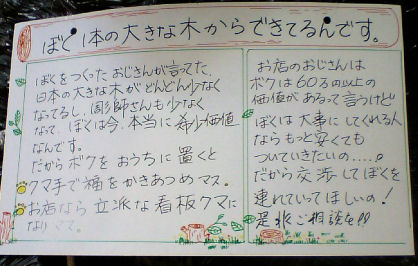 ぼく1本の大きな木からできてるんです。
ぼくをつくったおじさんが言ってた。
日本の大きな木がどんどん少なく
なってるし、彫師さんも少なく
なって、ぼくは今、本当に希少価値
なんです。
だからボクをおうちに置くと
クマ手で福をかきあつめマス。
お店なら立派な看板クマに
なりマス。
お店のおじさんは
ボクは60万円以上の
価値があるって言うけど
ぼくは大事にしてくれる人
ならもっと安くても
ついていきたいの.....。
だから交渉してぼくを
連れていってほしいの!
是非ご相談を!!